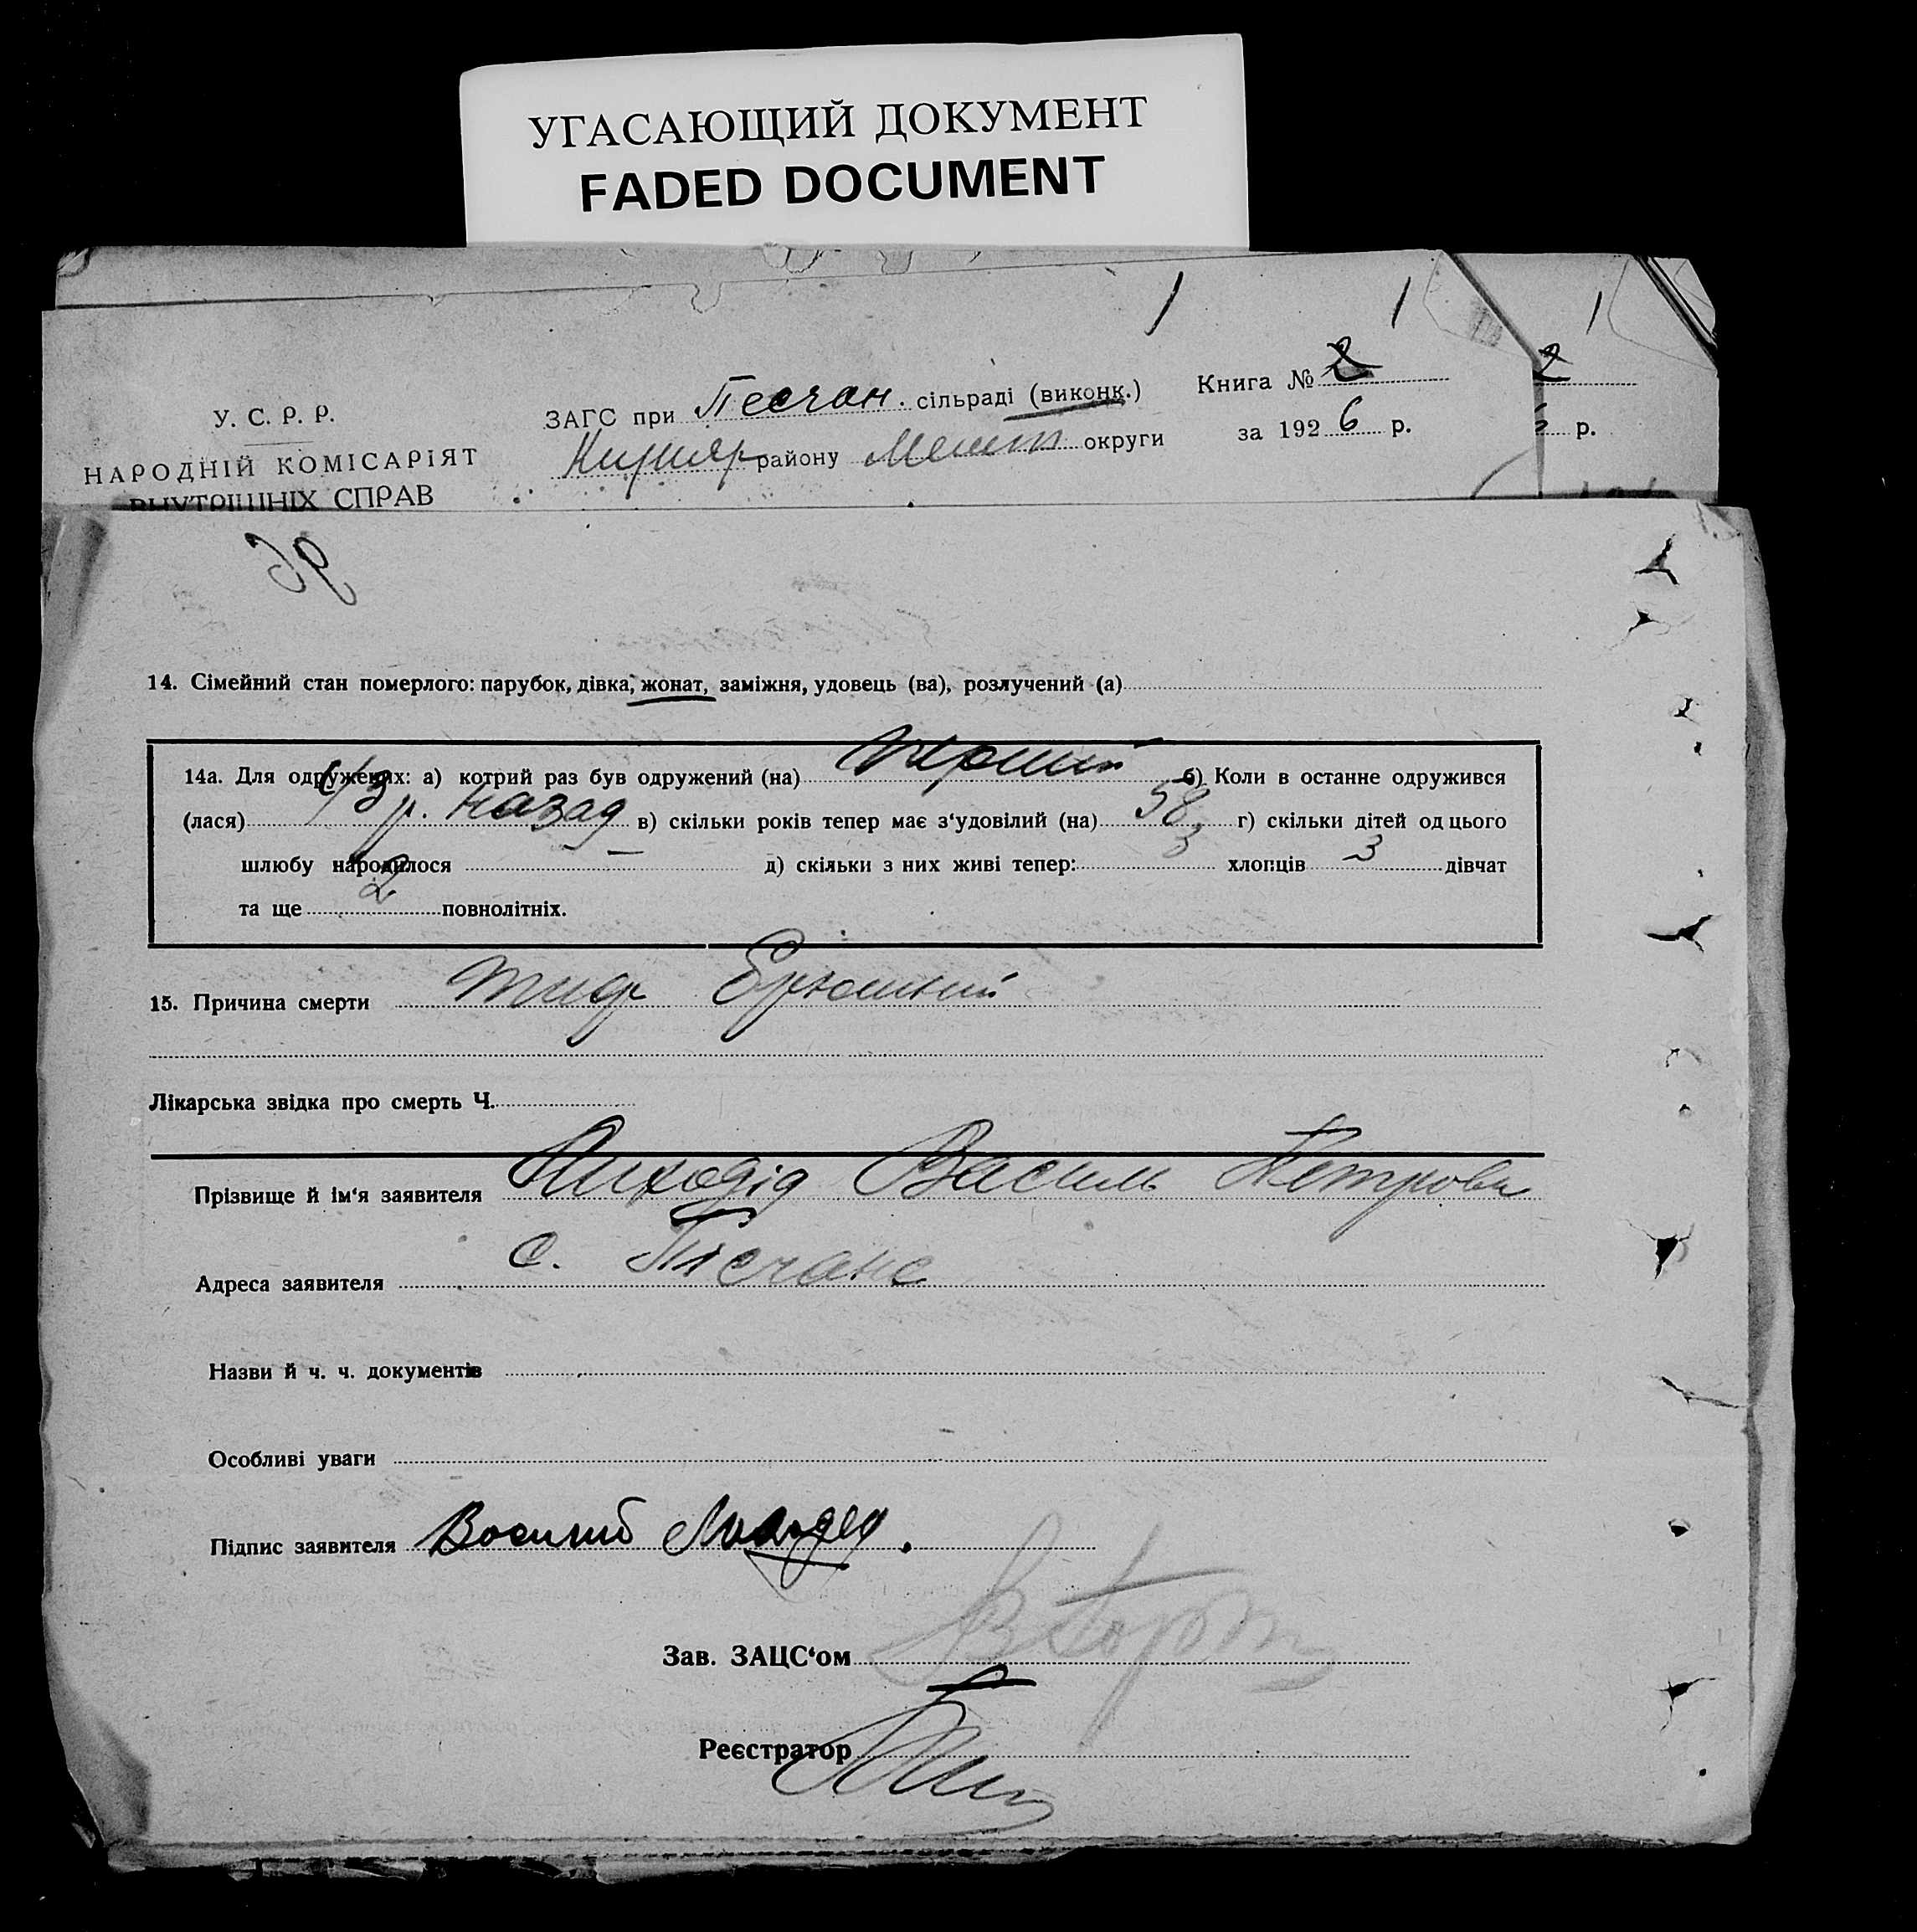 УГАСАЮЩИЙ ДОКУМЕНТ
FADED DOCUMENT
1 1 1
У. С. Р. Р.
НАРОДНІЙ КОМІСАРІЯТ
ВНУТРІШНІХ СПРАВ
ЗАГС при Песчан. сільраді (виконк.)
району Меліт округи
Книга № 2
за 1926 р.
2
р.
14. Сімейний стан померлого: парубок, дівка, жонат, заміжня, удовець (ва), розлучений (а)
14а. Для одружених: а) котрий раз був одружений (на) перший б) Коли в останне одружився
(лася) 43 р. назад в) скільки років тепер має з‘удовілий (на) 58 г) скільки дітей од цього
шлюбу народилося — д) скільки з них живі тепер: 3 хлопців 3 дівчат
та ще 2 повнолітніх.
15. Причина смерти тиф брюшний
Лікарська звідка про смерть Ч.
Прізвище й ім‘я заявителя Лиходід Василь Петрович
Адреса заявителя с. Пісчане
Назви й ч. ч. документів
Особливі уваги
Підпис заявителя Василий
Зав. ЗАЦС‘ом
Реєстратор